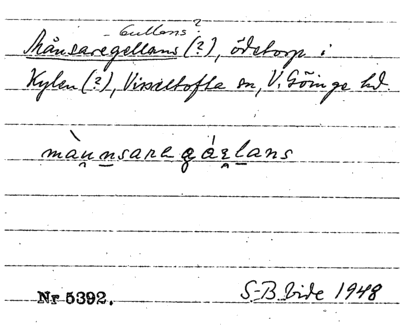 Gullans?
Månsaregellans (?), ödetorp i
Kylen (?), Visseltofta sn, V. Göinge hd.
màu̯n̲saregáɛ̯l̲ans
Nr 5392.
S-B. Vide 1948